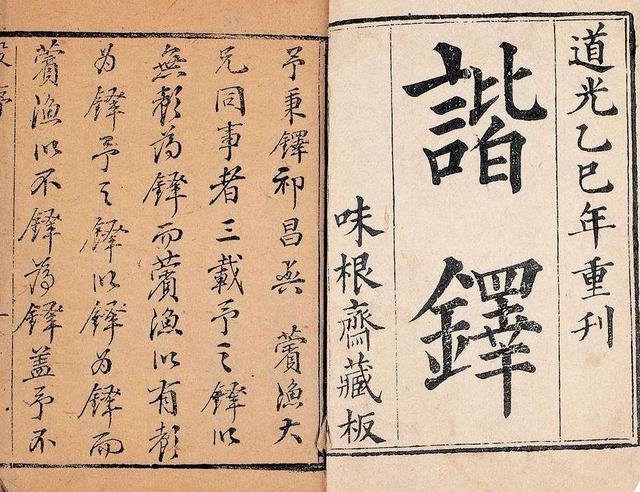 道光乙巳年重刊
諧鐸
味根齋藏板
予秉鐸祁昌與薲漁大
兄同事者三載予之鐸以
無聲為鐸而薲漁以有聲
為鐸予之鐸以鐸為鐸而
薲漁以不鐸為鐸蓋予不